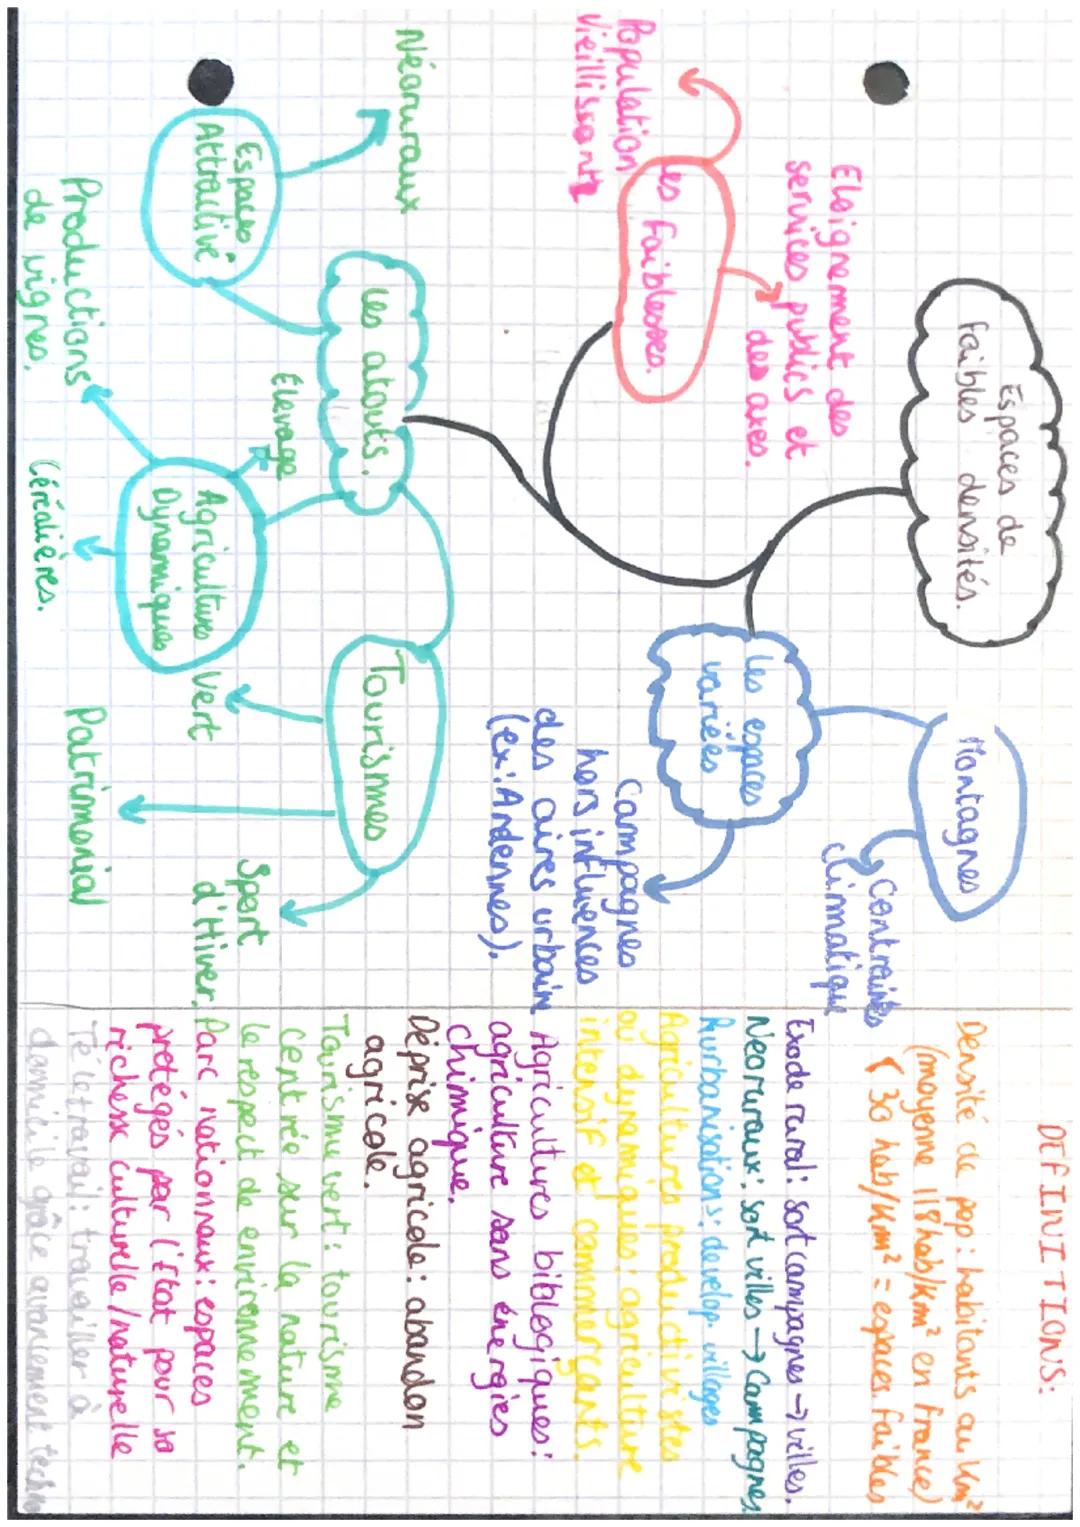 Espaces de
faibles densités.
Eloignement des
services publics et
des axes.
les faiblesses.
Population
vieillissante
Montagnes
Contraintes
climatique
les espaces
variées
Campagnes
hors influences
des aires urbain
(ex: Ardennes).
Néoruraux
les atouts.
Espaces
Attractive
Elevage
Agricultures
Dynamiques
Productions
de vignes.
Céréalières.
Tourismes
Vert
Patrimonial
Sport
d'Hiver.
DEFINITIONS:
Densité de pop: habitants au km²
(moyenne 118 hab/km² en France)
< 30 hab/km² = espaces faibles
Exode rural: sort campagnes → villes.
Neoruraux: sort villes → Campagnes
Rurbanisations: develop. villages
Agricultures productivistes
ou dynamiques: agriculture
intensif et commerçants.
Agricultures biblogiques:
agriculture sans énergies
chimique.
Déprise agricole: abandon
agricole.
Tourisme vert: tourisme
Centrée sur la nature et
le respect de environnement.
Parc nationnaux: espaces
protégés par l'Etat pour sa
richesse culturelle/naturelle
Teletravail: travailler à
domicile grâce avancement techno